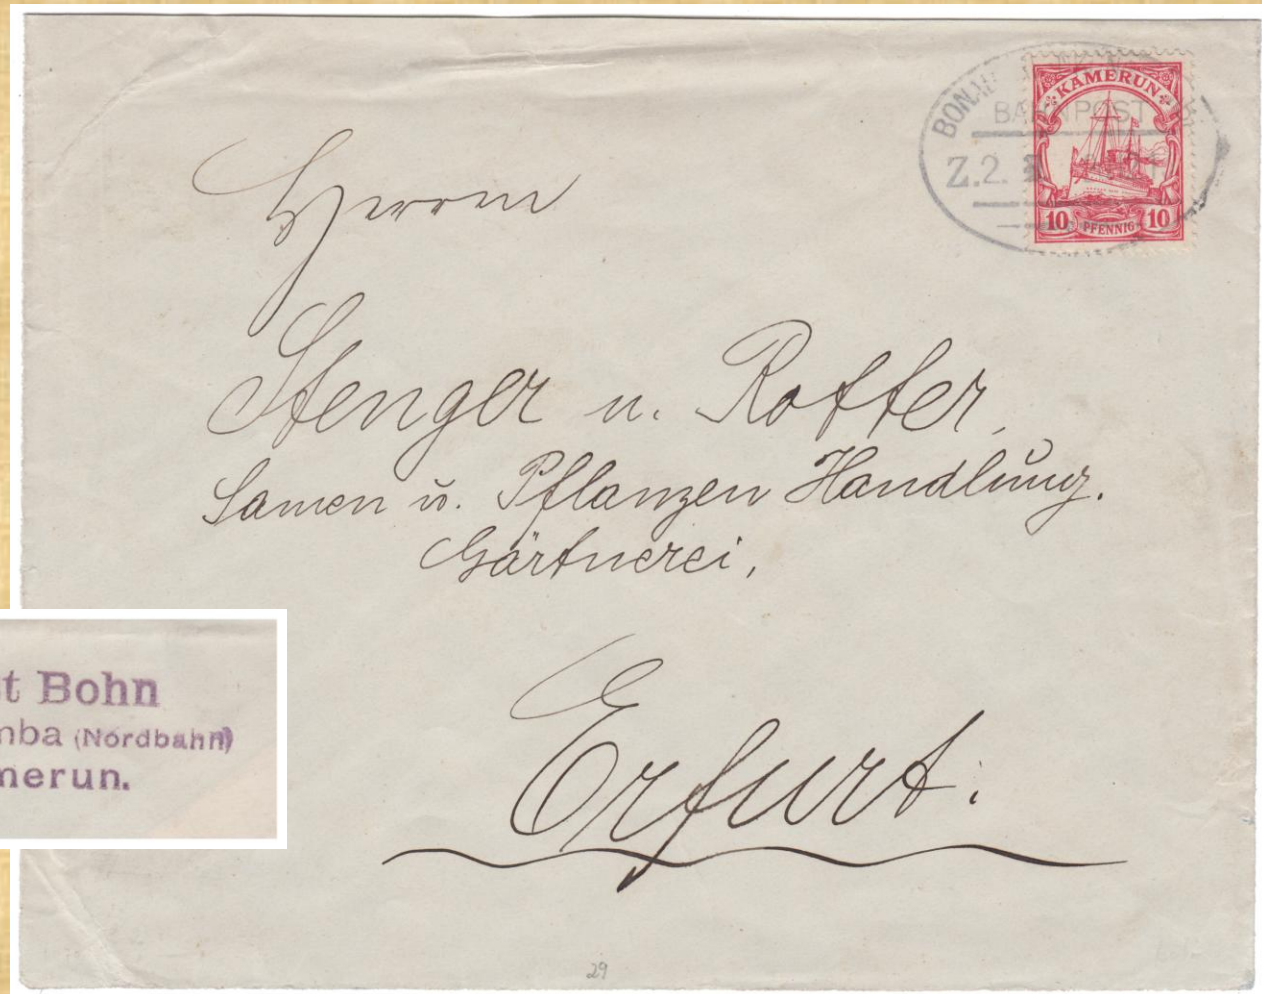 KAMERUN
BAHNPOST
Z.2.
10 PFENNIG 10
Herrn
Stenger u. Rotter,
Samen u. Pflanzen Handlung.
Gärtnerei,
Erfurt.
t Bohn
mba (Nordbahn)
merun.
29